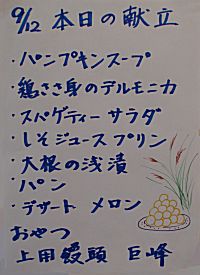 9/12 本日の献立
・パンプキンスープ
・鶏ささ身のデルモニカ
・スパゲティー サラダ
・しそジュース プリン
・大根の浅漬
・パン
・デザート メロン
おやつ
上用饅頭 巨峰